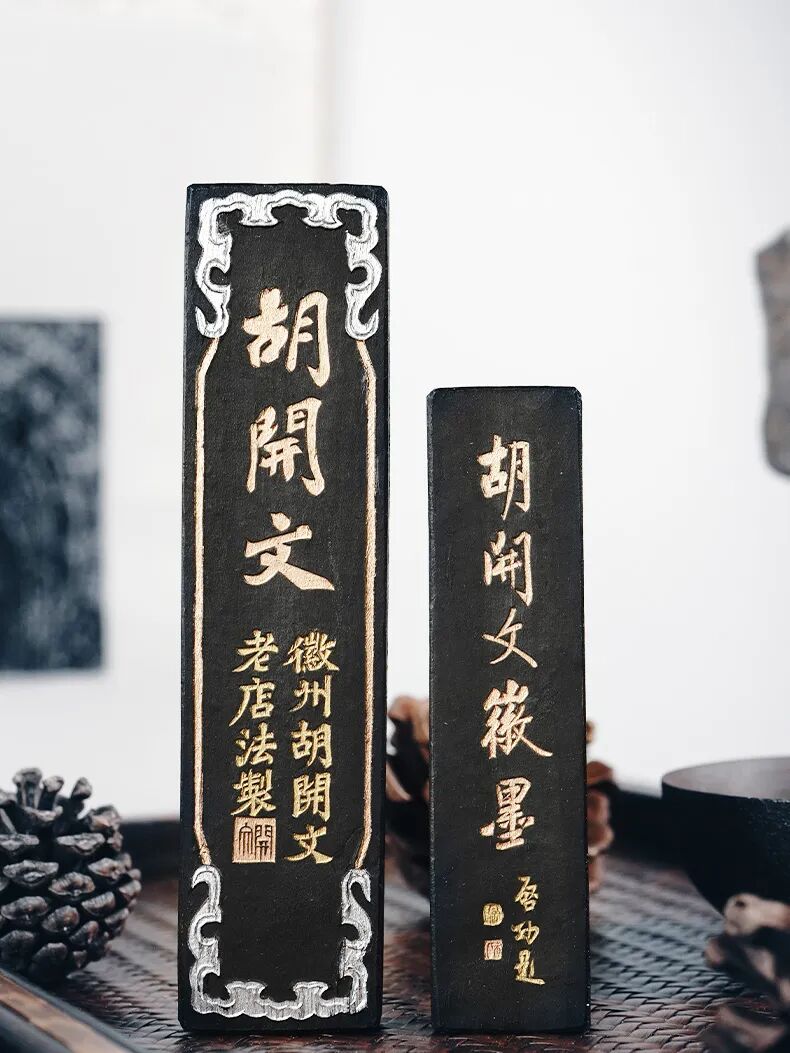 胡開文
徽州胡開文
老店法製
開文
胡開文徽墨
启功题